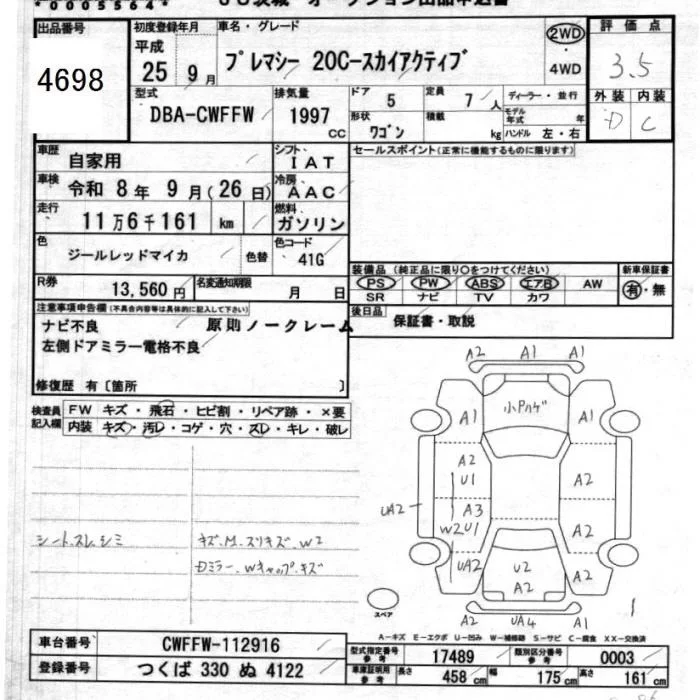 *0005564*
出品番号
4698
初度登録年月
平成
25 9月
車名・グレード
プレマシー 20Cースカイアクティブ
2WD
4WD
評価点
3.5
外装 内装
D C
型式
DBA-CWFFW
排気量
1997
CC
ドア
5
定員
7 人
形状
ワゴン
積載
kg
ディーラー・並行
モデル年式 年
ハンドル 左・右
車歴
自家用
シフト
IAT
セールスポイント(正常に機能するものに限ります)
車検
令和 8年 9月(26日)
冷房
AAC
走行
11万6千161 km
燃料
ガソリン
色
ジールレッドマイカ
色替
色コード
41G
R券
13,560円
名変通知期限
月 日
装備品 (純正品に限り○をつけてください)
PS PW ABS エアB AW
SR ナビ TV カワ
新車保証書
有・無
後日品
保証書・取説
注意事項申告欄(不具合内容等は具体的に記入して下さい)
ナビ不良
原則ノークレーム
左側ドアミラー電格不良
修復歴 有〔箇所 〕
検査員記入欄
FW キズ・飛石・ヒビ割・リペア跡・×要
内装 キズ・汚レ・コゲ・穴・ズレ・キレ・破レ
シート.スレ.シミ
キズ.M.スリキズ.W2
Dミラー.Wキャップ.キズ
A2 A1 A1
A1 A1
A2
U1
A2
A3
W2U1
A2
UA2
UA2
U2
A2
A2
A2 UA4 A1
スペア
A-キズ E-エクボ U-凹み W-補修跡 S-サビ C-腐食 XX-交換済
車台番号
CWFFW-112916
登録番号
つくば 330 ぬ 4122
型式指定番号
参考
17489
類別区分番号
参考
0003
車庫証明用
参考
長さ
458 cm
幅
175 cm
高さ
161 cm